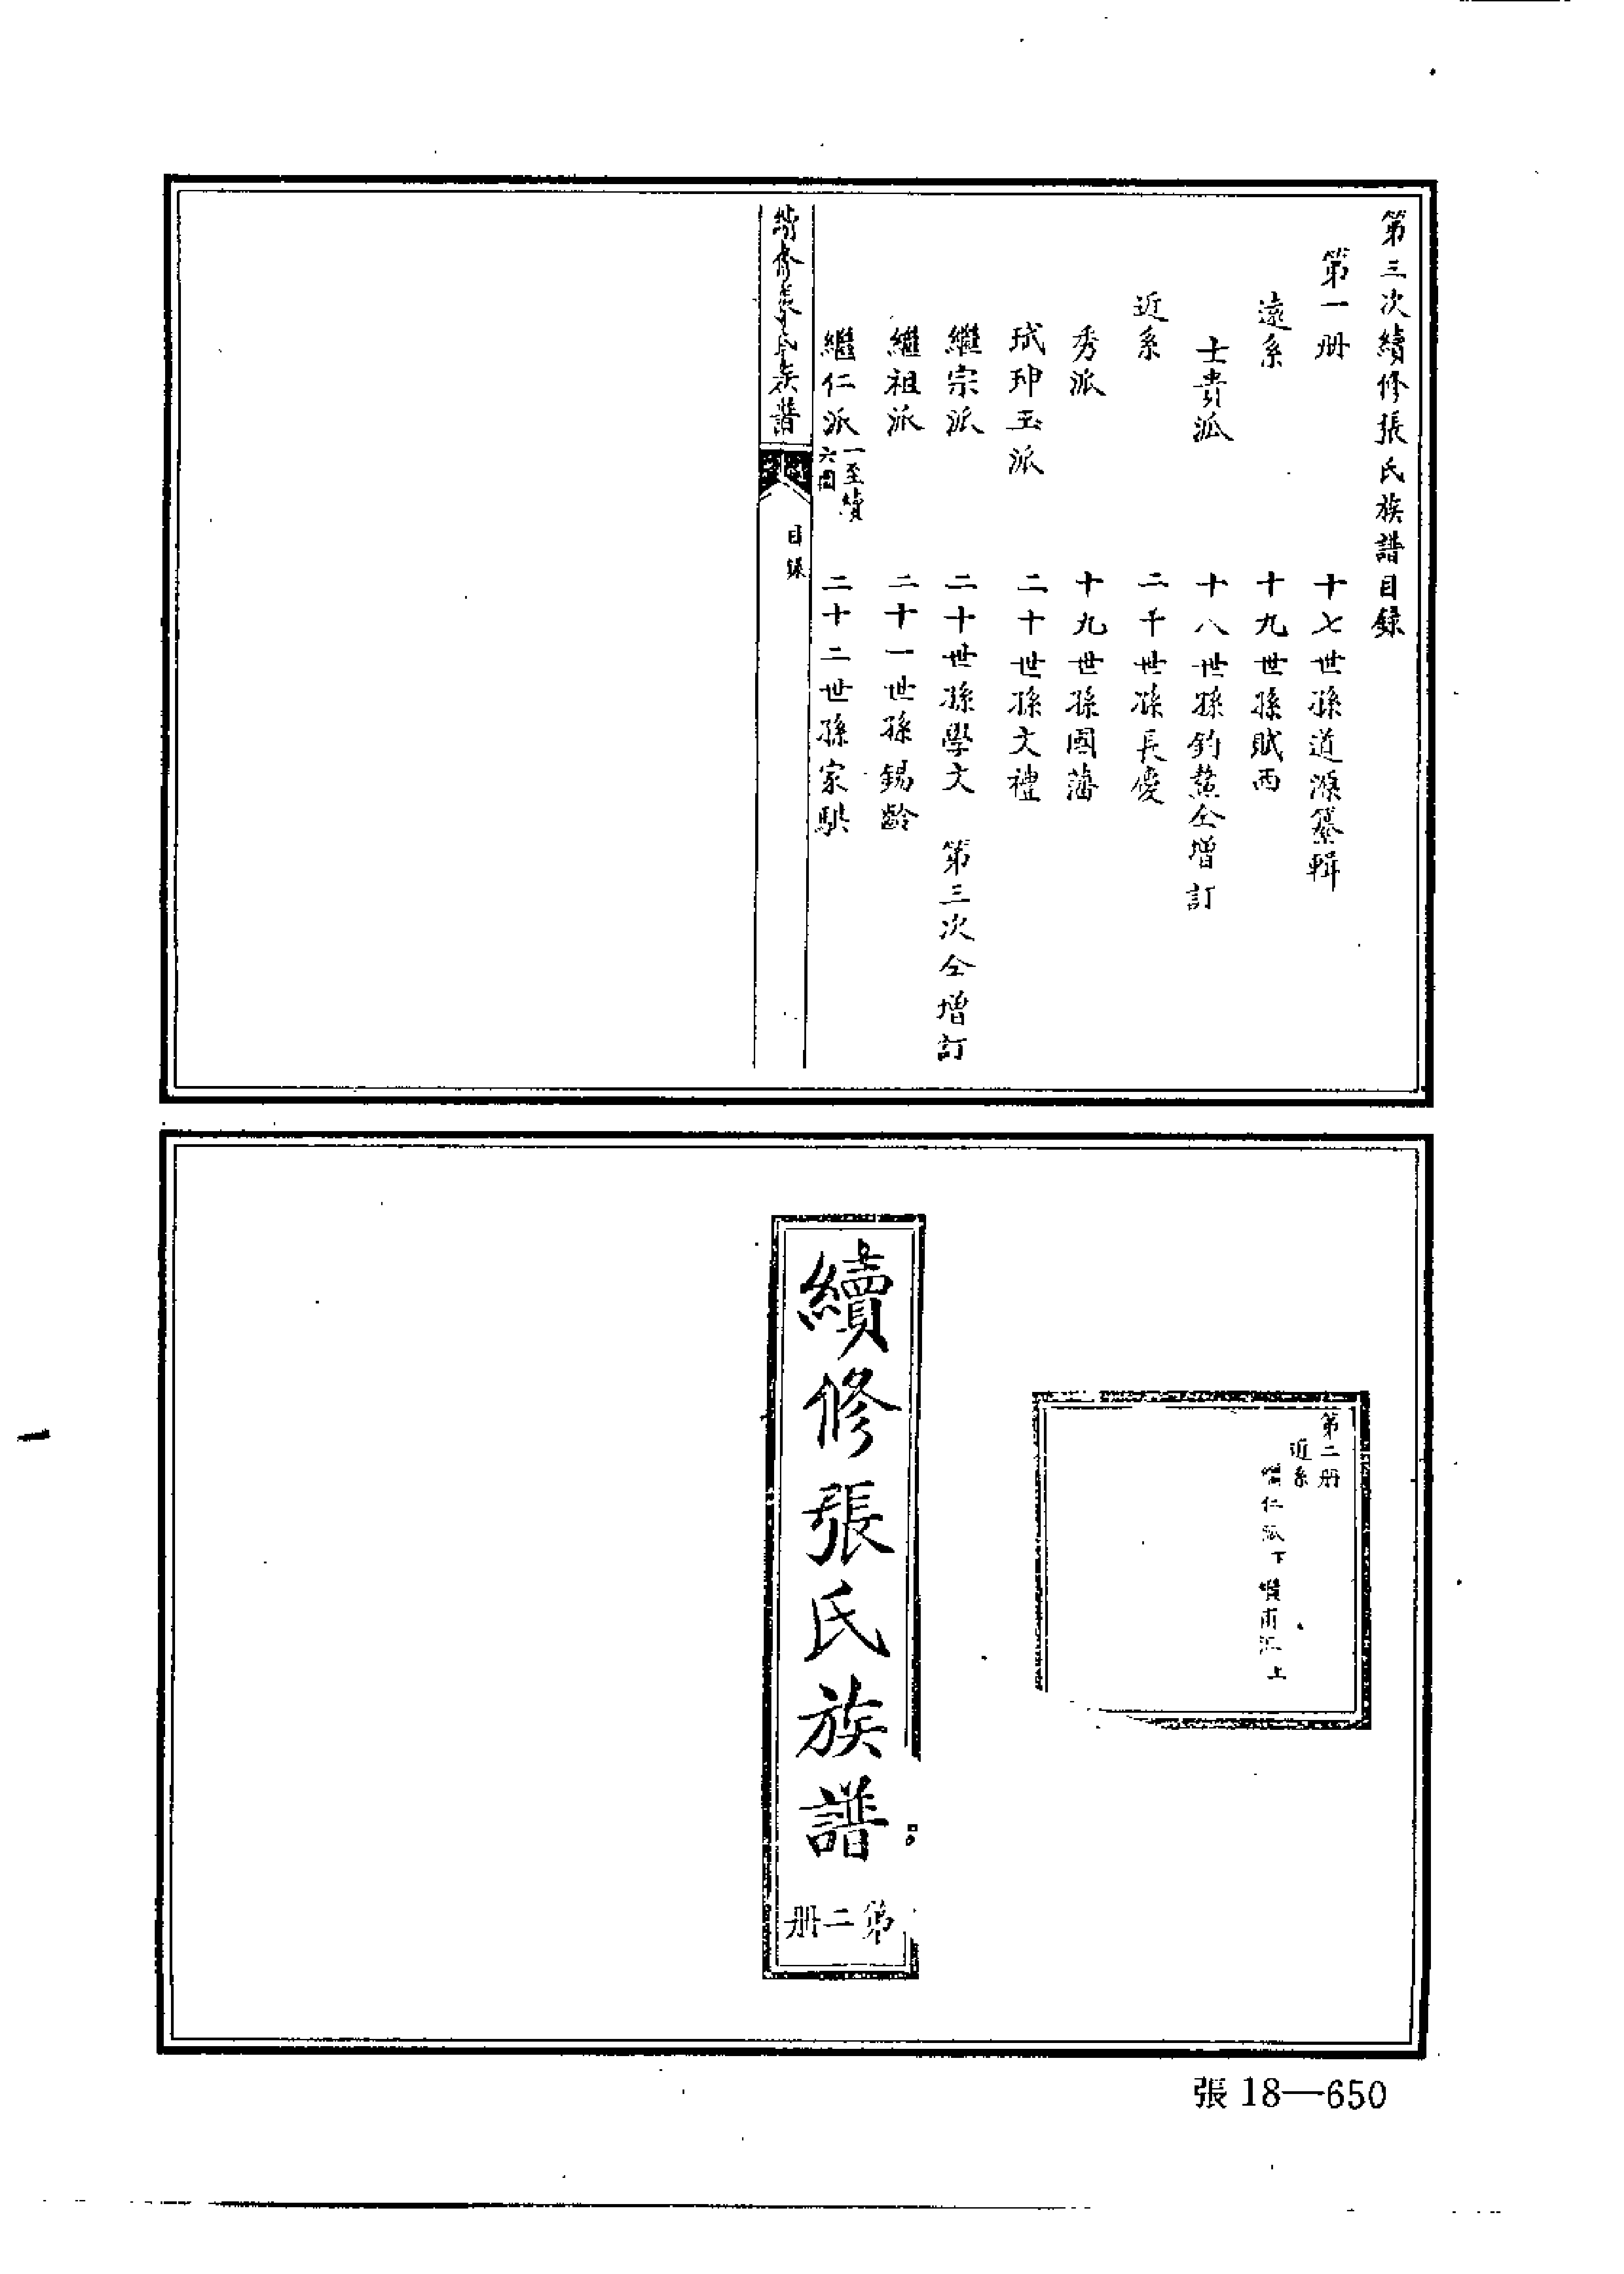 第三次續修張氏族譜目錄
第一册 十七世孫道源纂輯
遠系 十九世孫賦西
士貴派 十八世孫釣鰲仝增訂
近系 二十世孫長慶
秀派 十九世孫國藩
玳珅玉派 二十世孫文禮
繼宗派 二十世孫學文 第三次仝增訂
繼祖派 二十一世孫錫齡
繼仁派 一至續六圖 二十二世孫家騏
續修張氏族譜 目錄
第二册
近系
繼仁派下 派上
續修張氏族譜
第二册
張 18—650